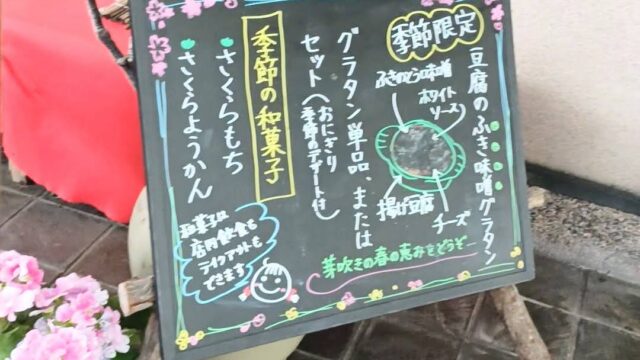 季節限定
豆腐のふき味噌グラタン
ふきのとう味噌
ホワイト
ソース
揚げ豆腐
チーズ
グラタン単品、または
セット(おにぎり
季節のデザート付)
芽吹きの春の恵みをどうぞ
季節の和菓子
さくらもち
さくらようかん
和菓子は
店内飲食も
テイクアウトも
できます